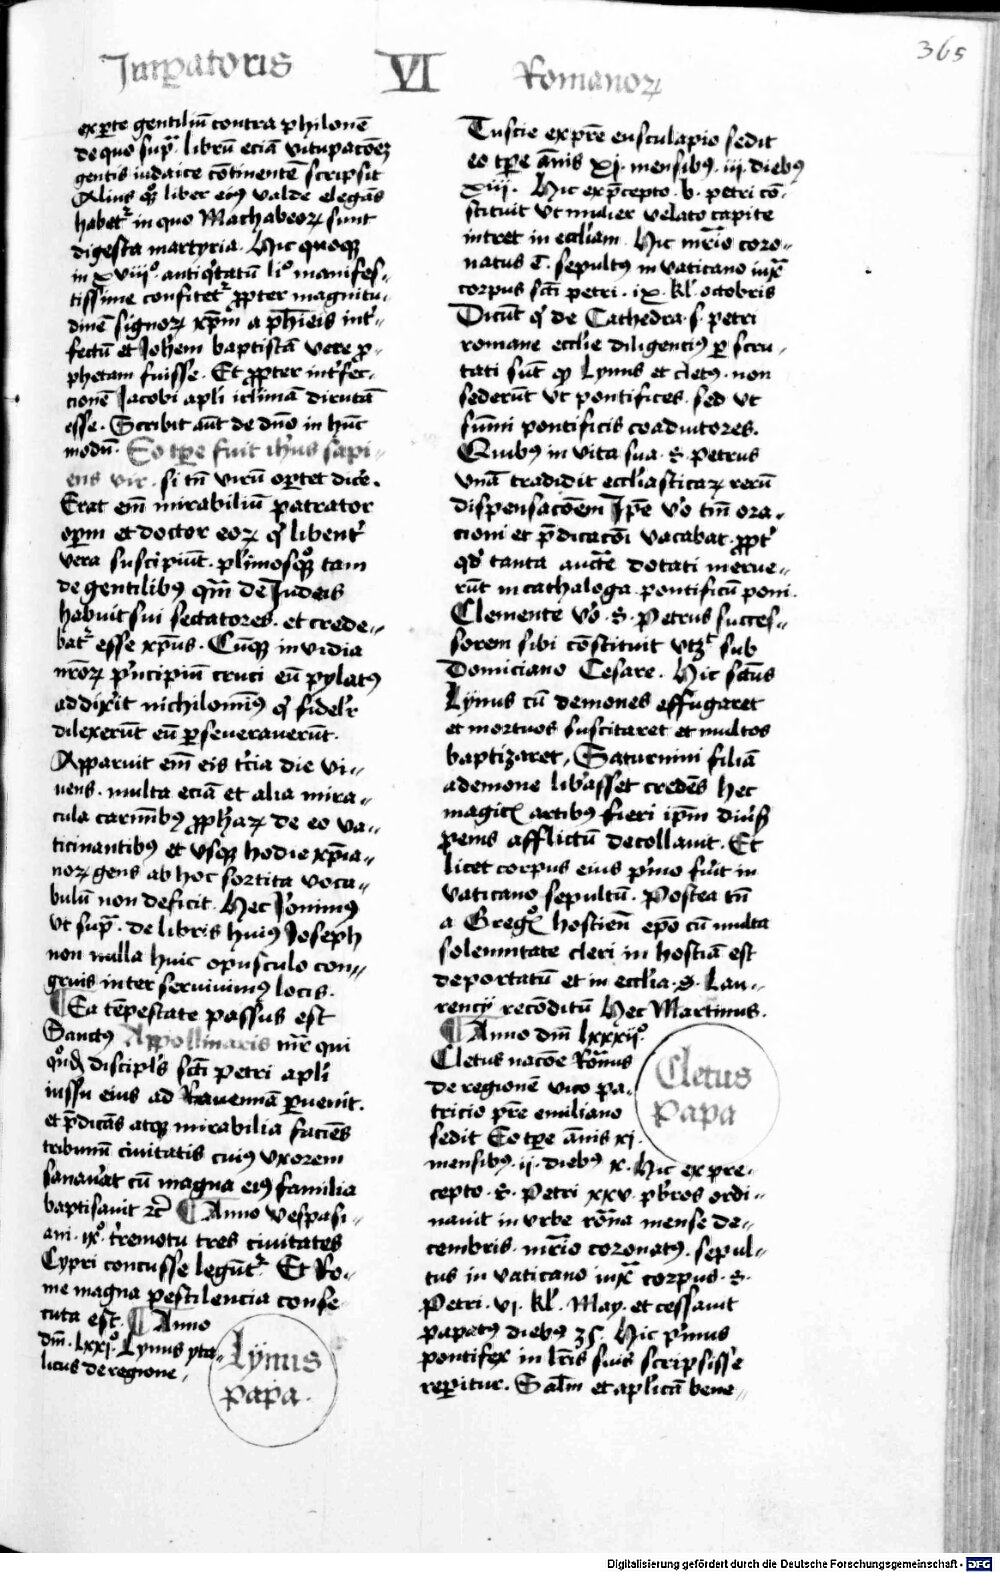 Imꝑatoris VI Romanoꝝ
365
ex ꝑte gentiliū contra philonē
de quo supᵃ librū eciā vitupacoēꝫ
gentis iudaice cōtinentē scripsit
Alius qͦꝫ liber eiꝰ valde elegās
habetʳ in quo Machabeoꝝ sunt
digesta martyria. Hic quoqꝫ
in xviiiͦ. antiqͥtatū liͦ manifes-
tissime confitetʳ ꝓpter magnitu-
dinē signoꝝ xp̄m a phīeis int'-
fectū et Joh'em baptistā vere ꝓ-
phetam fuisse. Et ꝓpter int'fec-
cionē Jacobi apl'i ierl'imā dirutā
esse. Scribit aūt de dn̄o in hūc
modū. Eo tꝑe fuit ih'us sapi-
ens vir. si tn̄ virū oꝑtet dic'e.
Erat em̄ mirabiliū patrator
oꝑm et doctor eoꝝ qͥ libent'
vera suscipiūt. pl'imosqꝫ tam
de gentilibꝰ qm̄ de Judeis
habuit sui sectatores. et crede-
batʳ esse xp̄us. Cūqꝫ invidia
nr̄oꝝ pͥncipiū cruci eū pylatꝰ
addixit nichilominꝰ qͥ fidel'r
dilexerūt eū ꝑseveraverūt.
Apparuit em̄ eis t'cia die vi-
vens. multa eciā et alia mira-
cula carmībꝰ ꝓph'aꝝ de eo va-
ticinantibꝰ et vsqꝫ hodie xp̄ia-
noꝝ gens ab hoc sortita voca-
bulū non deficit. Hec Jonimꝰ
vt supᵃ. de libris huiꝰ Joseph
non nulla huic opusculo con-
gruis inter servivimꝰ locis.
¶ Ea tēpestate passus est
Sanctꝰ Appollinaris mr̄ qui
qͦdꝫ discipl's sc̄ti petri apl'i
iussu eius ad Ravennā ꝑvenit.
et p̄dicās atqꝫ mirabilia faciēs
tribunū civitatis cuiꝰ vxorem
sanav'at cū magna eiꝰ familia
baptisavit ꝛc̄ ¶ Anno Vespasi-
ani. ixͦ. t'remotu tres civitates
Cypri concusse legūtʳ. Et Ro-
me magna pestilencia conse-
cuta est. ¶ Anno
dm̄. lxxiͦ. Lynus yta-
licus de regione
Lynus
papa.
Tuscie ex pr̄e eusculapio sedit
eo tꝑe ānis xj. mensibꝰ. iij. diebꝰ
xiij. Hic ex p̄cepto. b. petri cō-
stituit vt mulier velato capite
intret in eccl'iam. Hic mr̄io coro-
natus ē. sepultꝰ in vaticano iuxᵃ
corpus sc̄ti petri. ix. kl'. octobris
Dicūt qͥ de Cathedra. s. petri
romane eccl'ie diligentiꝰ ꝑ scru-
tati sūt qͥ Lynus et cletꝰ. non
sederūt vt pontifices. sed vt
sūmi pontificis coadiutores.
Quibꝰ in vita sua. S. Petrus
vnā tradidit eccl'iasticaꝝ rerū
dispensacōem Ip̄e v'o tm̄ ora-
cioni et p̄dicacōi vacabat. ꝓpt'
qd' tanta aucte dotati merue-
rūt in cathaloga pontificū poni.
Clemente v'o. S. Petrus succes-
sorem sibi cōstituit vtꝫ sub
Domiciano Cesare. Hic sc̄tus
Lynus cū demones effugaret
et mortuos suscitaret et multos
baptizaret, Saturnini filiā
a demone lib'asset credēs hec
magicˢ artibꝰ fieri ip̄m div'ß
penis afflictū decollavit. Et
licet corpus eius pͥmo fu'it in
vaticano sepultū. Postea tn̄
a Gregͦ. hostien̄ ep̄o cū multa
solemnitate cleri in hostiā est
deportatū et in eccl'ia. S. Lau-
rencij recōditū Hec Martinus.
¶ Anno dm̄ lxxxijͦ.
Cletus nacōe Romᵃnus
de regionē vico pa-
tricio pr̄e emiliano
sedit Eo tꝑe ānis xj.
mensibꝰ. ij. diebꝰ x. Hic ex pre-
cepto. S. Petri xxv. pb'ros ordi-
navit in vrbe rōna mense de-
cembris. mr̄io coronatꝰ. sepul-
tus in vaticano iuxᵃ corpus. S.
Petri. vi. kl'. May. et cessavit
papatꝰ diebꝰ 25. Hic pͥmus
pontifex in lr̄is suis scripsisse
reꝑitur. Sal'm et apl'icā bene-
Cletus
papa
Digitalisierung gefördert durch die Deutsche Forschungsgemeinschaft - DFG